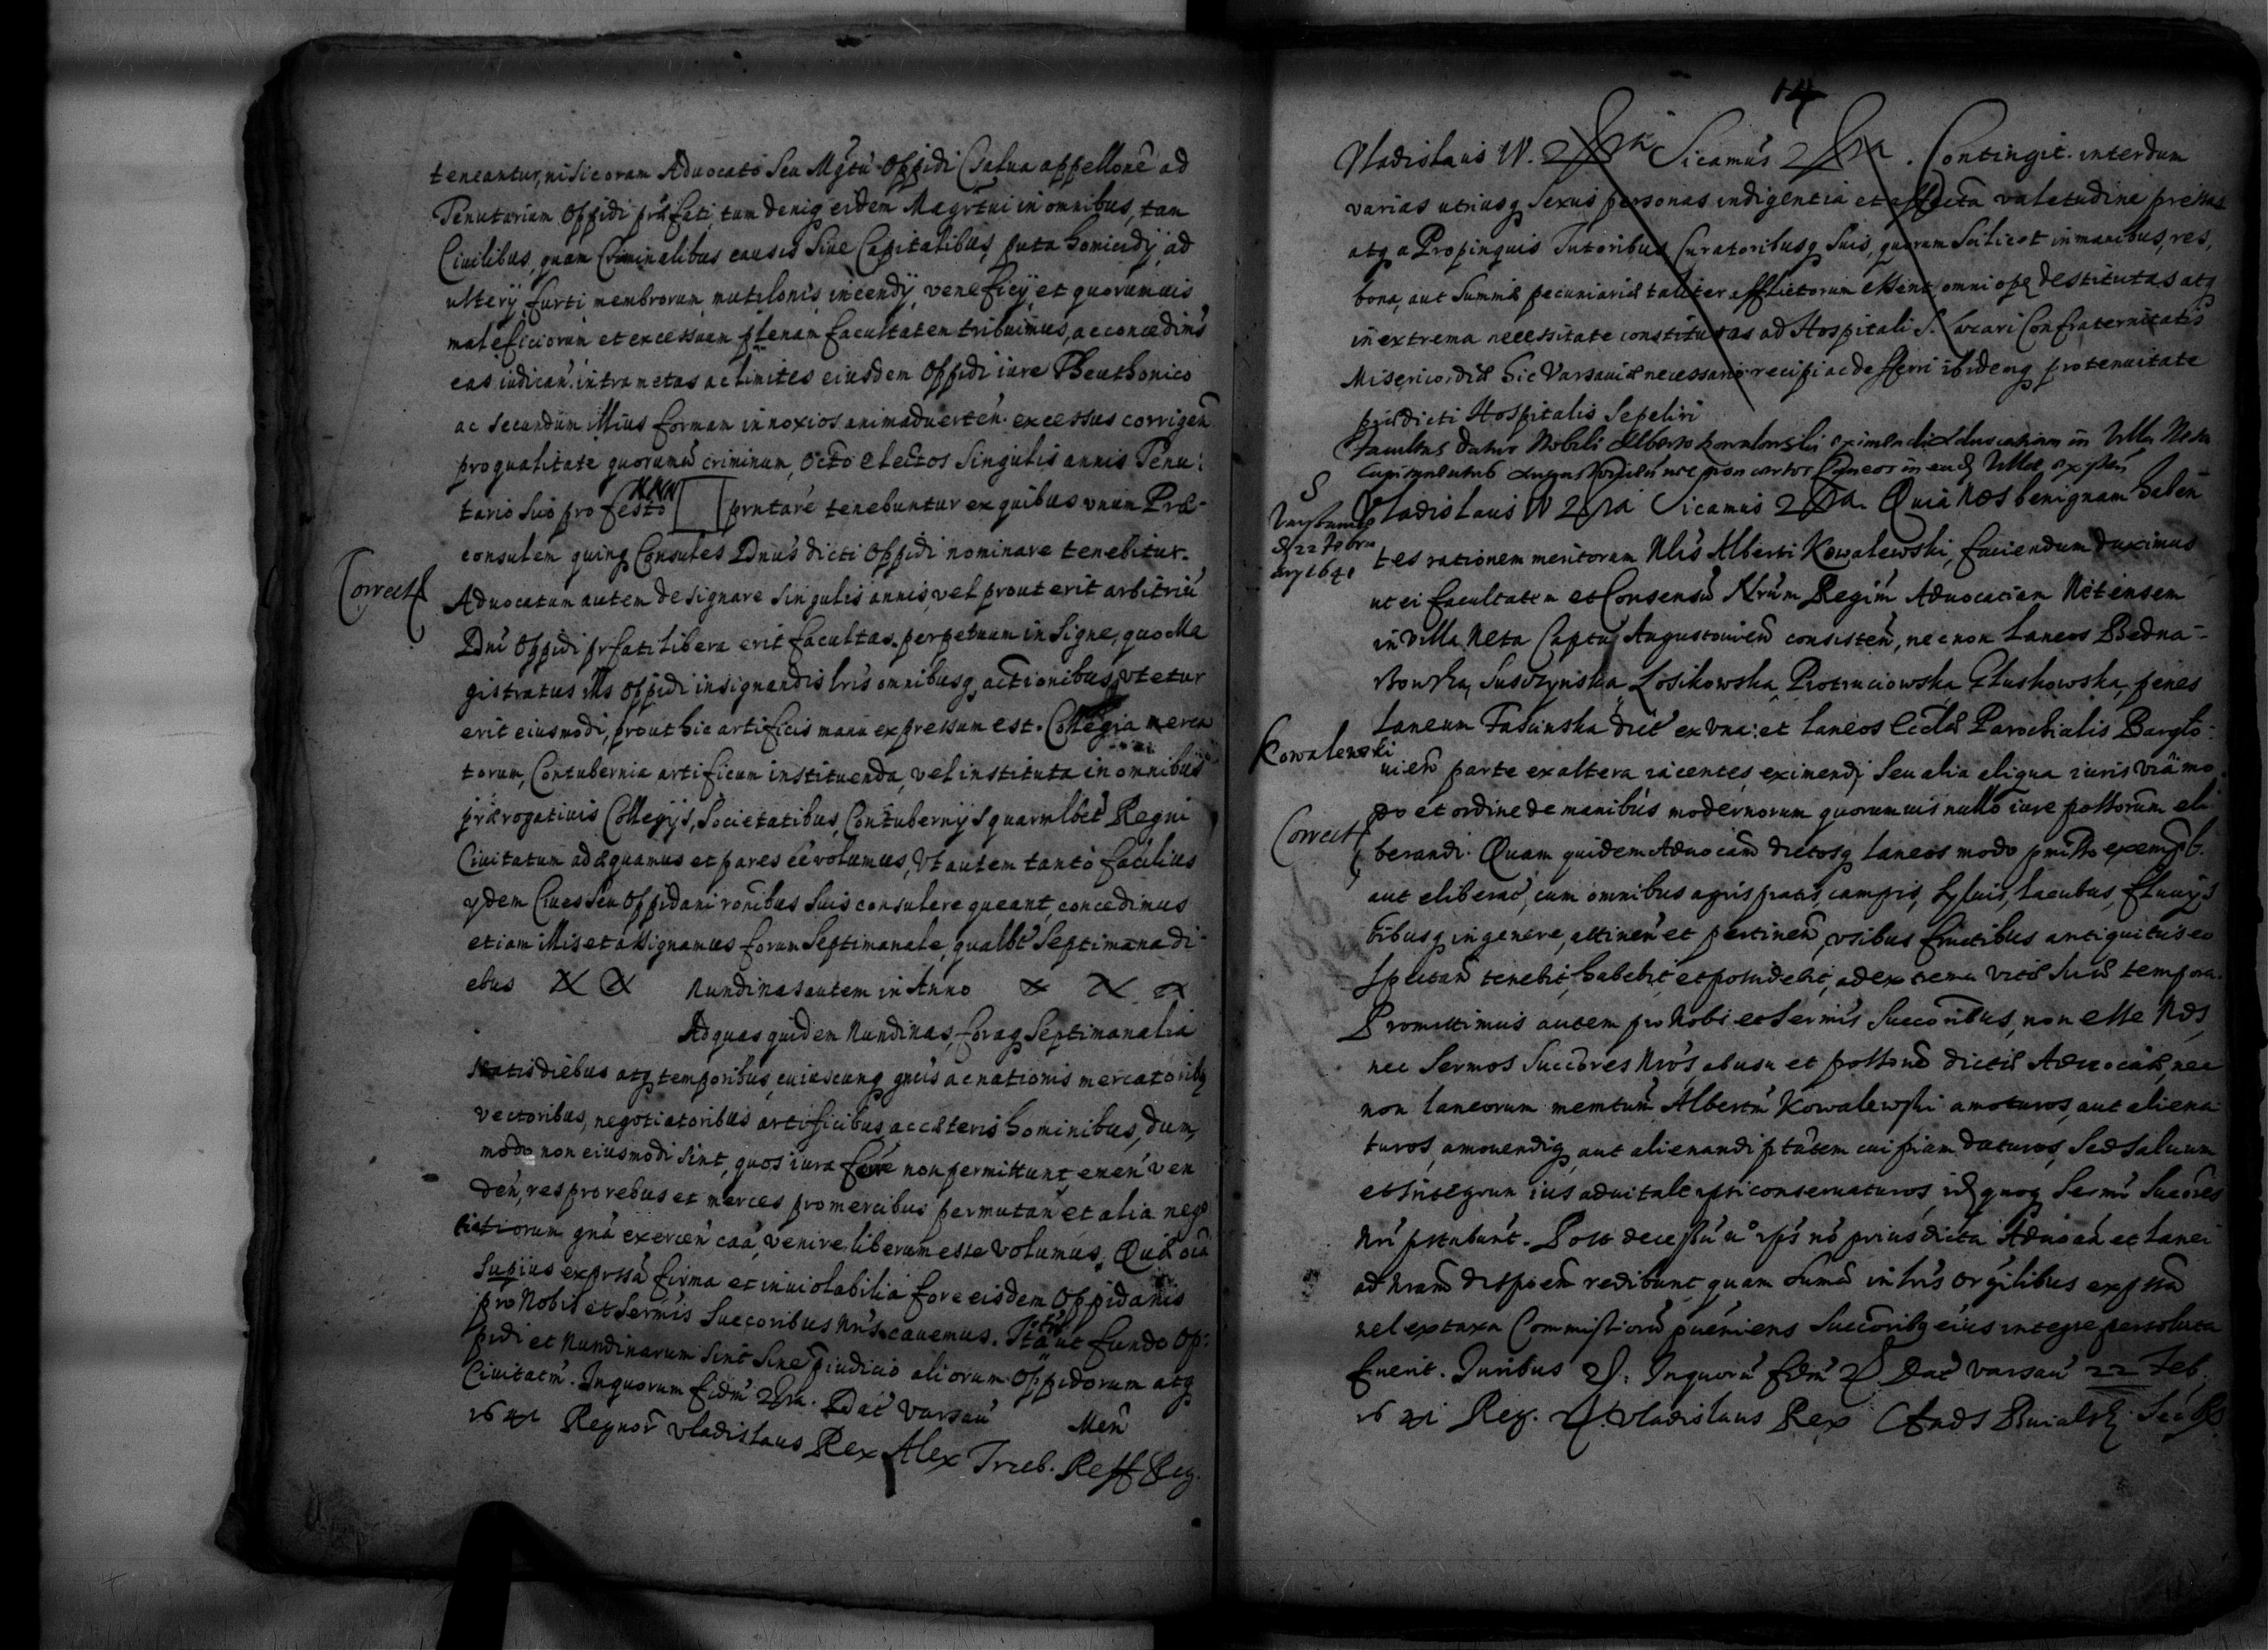 teneantur, nisi coram Advocato seu Mgtu Oppidi (salua appellone ad
Tenutarium Oppidi prefati, tum deniq eidem Magrtui in omnibus, tam
Ciuilibus, quam Criminalibus causis siue Capitalibus, puta homicidij, ad
ulterij, furti, membrorum mutilonis, incendij, veneficij, et quorumuis
maleficiorum et excessuum plenam facultatem tribuimus, ac concedimus
eas iudican. intra metas ac limites eiusdem Oppidi iure Theuthonico
ac secundum illius formam in noxios animaduerten. excessus corrigen
pro qualitate quorumuis criminum, octo electos singulis annis Tenu:
tario suo pro festo NNN prntare tenebuntur ex quibus vnum Præ-
consulem quinq Consules Dnus dicti Oppidi nominare tenebitur.
Correct
Aduocatum autem designare singulis annis, vel prout erit arbitriu
Dni Oppidi prfati libera erit facultas. perpetuum insigne, quo Ma
gistratus illis Oppidi insignandis lris omnibusq actionibus vtetur
erit eiusmodi, prout hic artificis manu expressum est. Collegia merca
torum, Contubernia artificum instituenda, vel instituta in omnibus
prærogatiuis Collegijs, Societatibus, Contubernijs quarumlibet Regni
Ciuitatum adæquamus et pares ee volumus, Vt autem tanto facilius
ijdem Ciues seu Oppidani ronibus suis consulere queant, concedimus
etiam illis et assignamus forum Septimanale, qualbt Septimana di
ebus Nundinas autem in Anno
Ad quas quidem Nundinas, foraq Septimanalia
statis diebus atq temporibus, cuiuscunq gntis ac nationis mercatoribq
vectoribus, negotiatoribus artificibus ac cæteris hominibus, dum
modo non eiusmodi sint, quos iura fore non permittunt, emen ven
den, res pro rebus et merces pro mercibus permutan et alia nego
tiatiorum gna exercen caa, venire liberum esse volumus. Quæ oia
supius exprssa firma et inuiolabilia fore eisdem Oppidanis
pro Nobis et Sermis Succoribus Nris cauemus. Ita ut fundo Op:
pidi et Nundinarum sint sine piudicio aliorum Oppidorum atq
Ciuitatm. In quorum fidm Dat Varsau Men
1641 Regnor Vladislaus Rex Alex Trzeb. Reff Reg.
14
Vladislaus IV. Sicamus. Contingit interdum
varias utriusq sexus personas indigentia et affecta valetudine pressas
atq a Propinquis Tutoribus Curatoribusq suis, quorum scilicet in manibus, res,
bona, aut summæ pecuniariæ taliter afflictorum essent, omni ope destitutas atq
in extrema necessitate constitutas ad Hospitali S. Lazari Confraternitatis
Misericordiæ hic Varsauiæ necessario recipi ac defferri ibidemq pro tenuitate
prædicti Hospitalis sepeliri
Facultas datur Nobili Alberto Kowalewski eximendi Aduocatiam in Villa Neta
nec non certos Laneos in eadq Villa existen
S
d 22 Febru
ary 1641
Vladislaus IV Sicamus. Quia Nos benignam haben
tes rationem meritorum Nlis Alberti Kowalewski, faciendum duximus
ut ei facultatem et Consensu Nrum Regiu Aduocatiam Netensem
in Villa Neta Captu Augustouien consisten, nec non Laneos Bedna-
rowska, Susczynska Losikowska Piotruciowska Gluskowska, penes
Laneum Fasunska dict ex vna: et laneos Ecclæ Parochialis Barglo-
Kowalewski
uien parte ex altera iacentes, eximendi seu alia aliqua iuris via mo
do et ordine de manibus modernorum quorumuis nullo iure possorum eli
Correct
berandi. Quam quidem Aduocam dictosq laneos modo pmisso exempt.
aut eliberat, cum omnibus agris pratis, campis, syluis, lacubus, fluuijs
tibusq in genere, attinen et pertinen, vsibus fructibus antiquitus eo
spectan tenebit, habebit et possidebit, ad extrema vitæ suæ tempora.
Promittimus autem pro Nobis et Sermis Succoribus, non esse Nos,
nec Sermos Succores Nros, ab usu et possone dictæ Aduocaæ, nec
non laneorum memtum Albertu Kowalewski amoturos, aut aliena
turos, amouendiq aut alienandi ptatem cuipiam daturos, sed saluum
et integrum ius aduitale ipsi conseruaturos, idq quoq Sermi Succores
Nri pstabunt. Post decessu u ipsius no prius dicta Aduoca et lanei
ad nram disponem redibunt quam suma in lris orgilibus exprssa
vel ex taxa Commissioru pueniens Succoribq eius integre persoluta
fuerit. Iuribus. In quoru fidm Dat Varsau 22 Feb.
1641 Reg. Vladislaus Rex